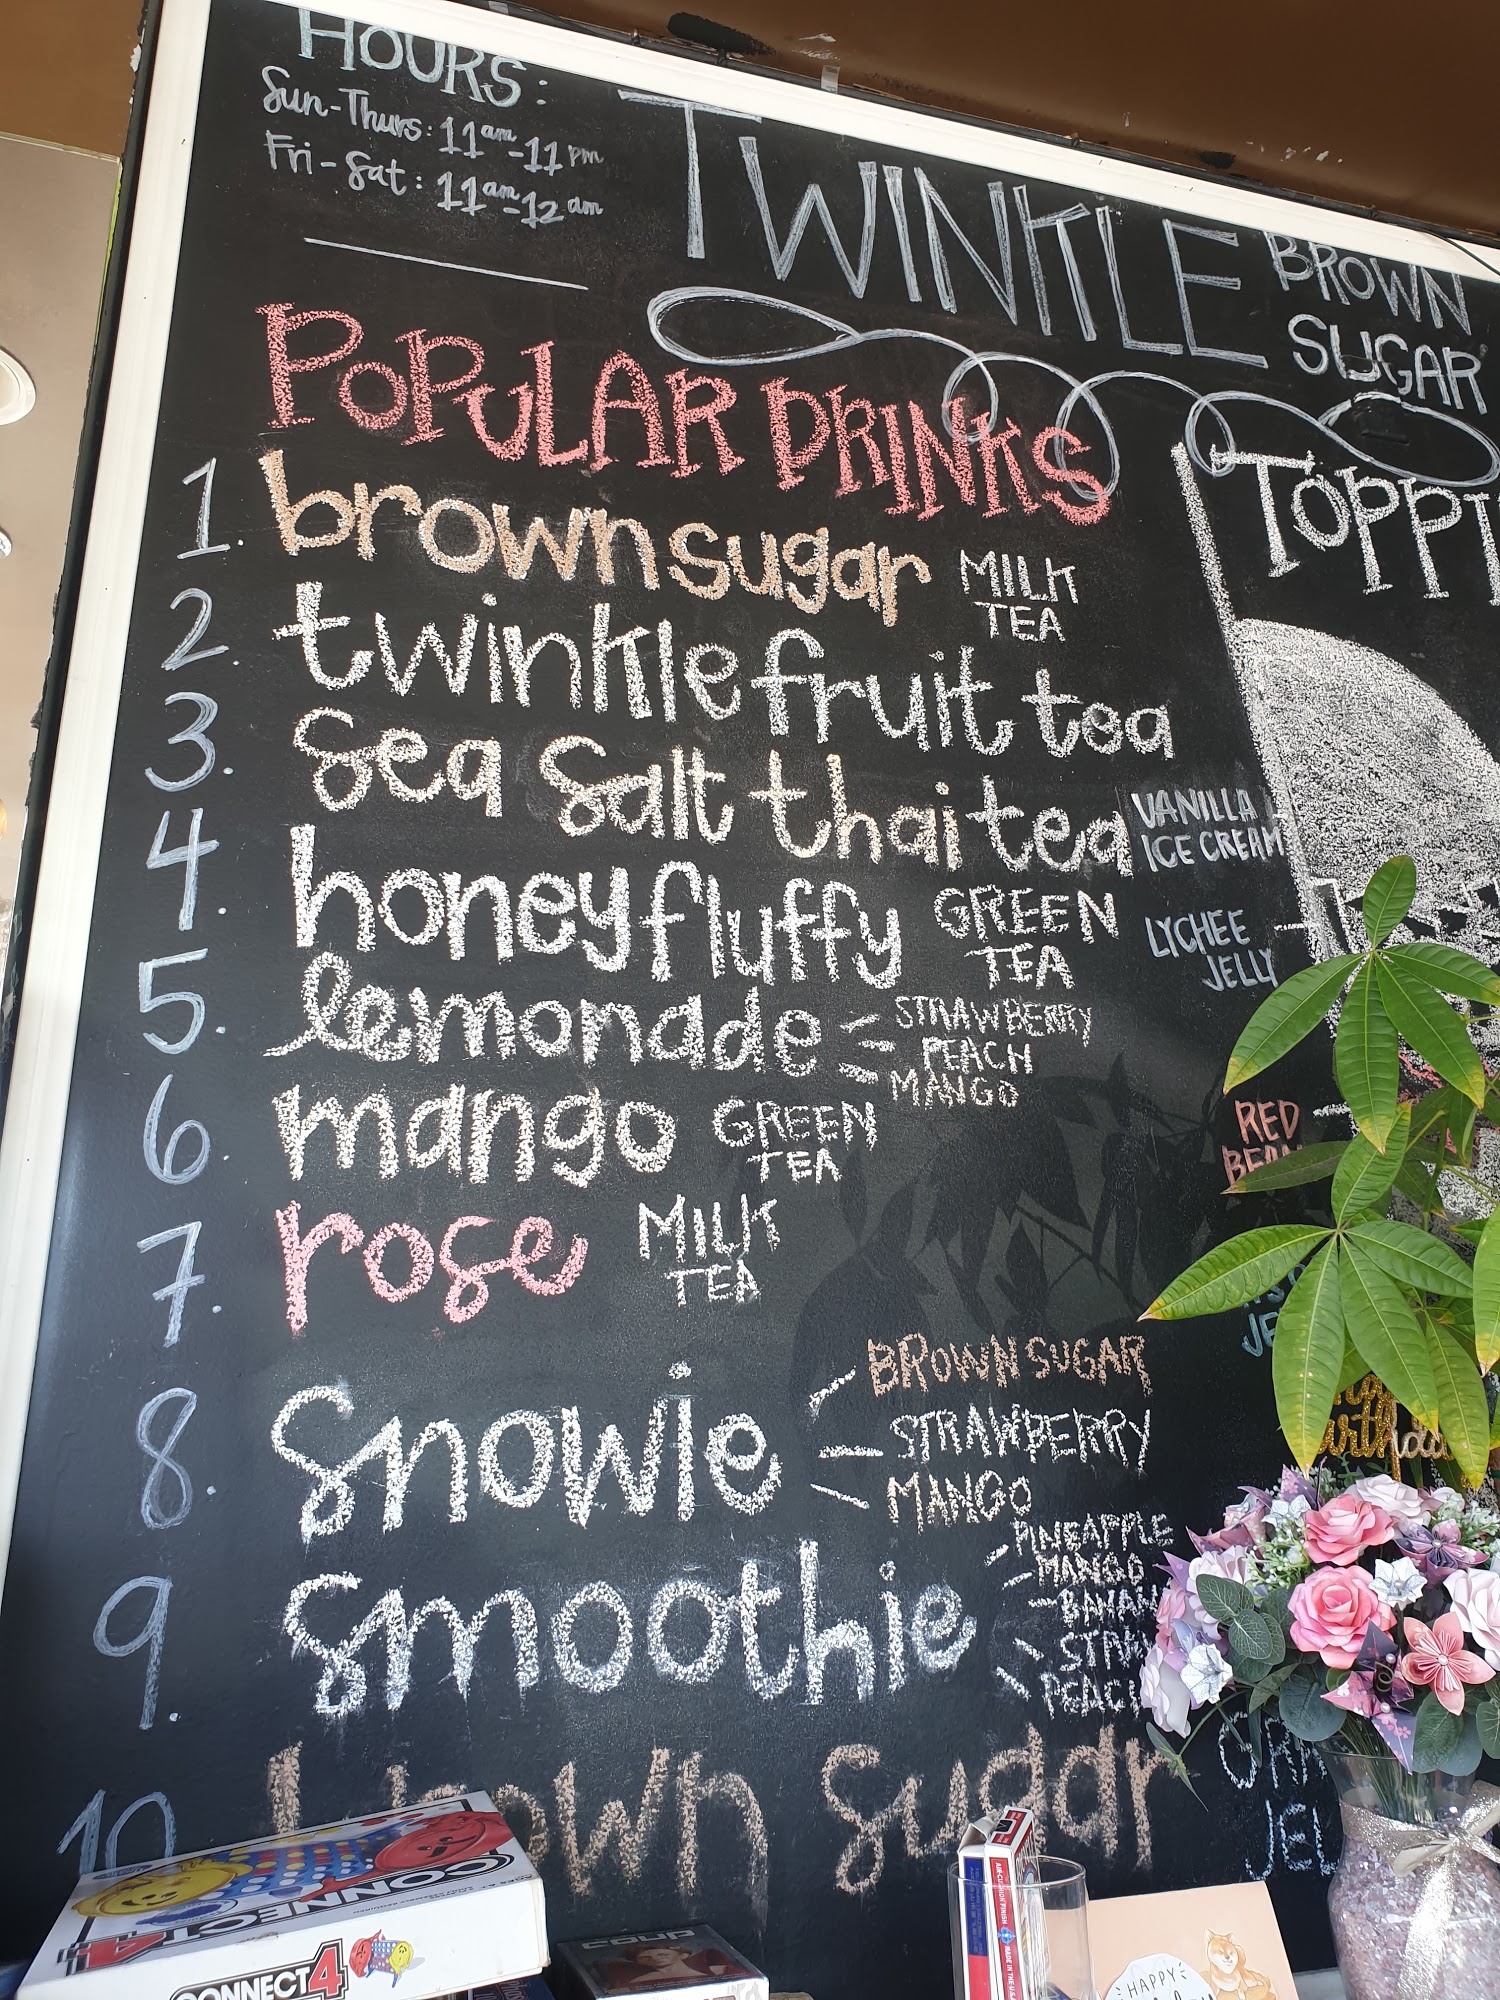 HOURS:
Sun-Thurs: 11am-11pm
Fri-Sat: 11am-12am
TWINKLE
BROWN
SUGAR
POPULAR DRINKS
1. brown sugar MILK TEA
2. twinkle fruit tea
3. sea salt thai tea
4. honey fluffy GREEN TEA
5. lemonade STRAWBERRY
PEACH
MANGO
6. mango GREEN TEA
7. rose MILK TEA
8. snowie BROWN SUGAR
STRAWBERRY
MANGO
9. smoothie PINEAPPLE
MANGO
BANAN
STRAW
PEACH
10 brown sugar
TOPPI
VANILLA
ICE CREAM
LYCHEE
JELLY
RED
BEAN
JE
JEL
CONNECT 4
CONNECT 4
COUP
AIR-CUSHION FINISH
MADE IN THE U.S.
HAPPY